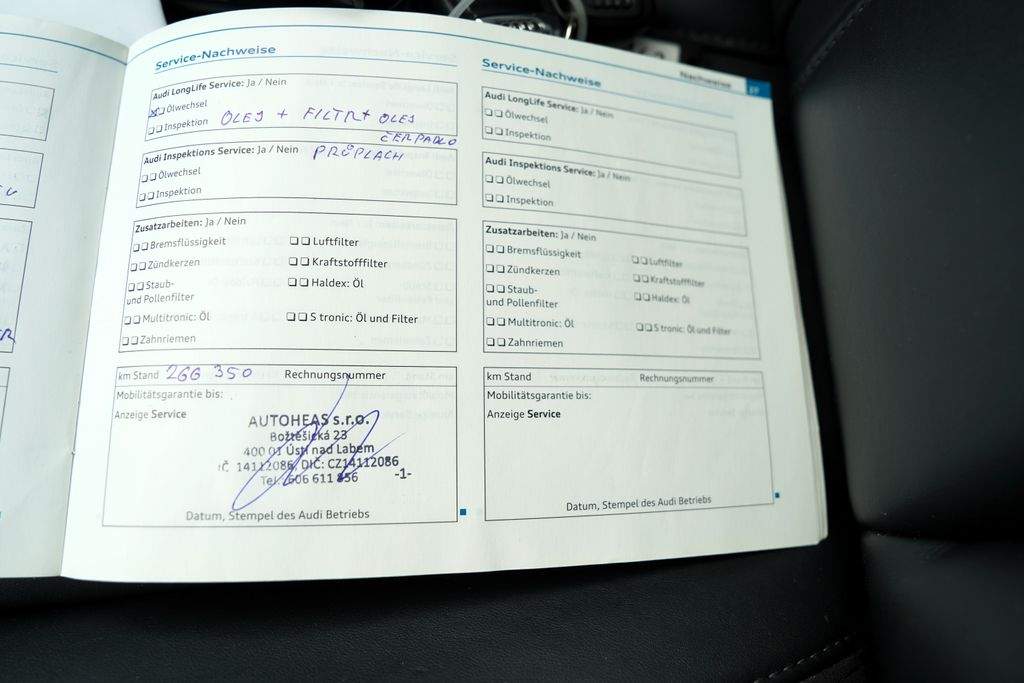 Service-Nachweise
Audi LongLife Service: Ja / Nein
Ölwechsel
Inspektion OLEJ + FILTR + OLEJ
ČERPADLO
Audi Inspektions Service: Ja / Nein PRŮPLACH
Ölwechsel
Inspektion
Zusatzarbeiten: Ja / Nein
Bremsflüssigkeit Luftfilter
Zündkerzen Kraftstofffilter
Staub- Haldex: Öl
und Pollenfilter
Multitronic: Öl S tronic: Öl und Filter
Zahnriemen
km Stand 266 350 Rechnungsnummer
Mobilitätsgarantie bis:
Anzeige Service
AUTOHEAS s.r.o.
Božtěšická 23
400 01 Ústí nad Labem
IČ. 14112086, DIČ: CZ14112086
Tel. 606 611 856 -1-
Datum, Stempel des Audi Betriebs
Nachweise
Service-Nachweise
Audi LongLife Service: Ja / Nein
Ölwechsel
Inspektion
Audi Inspektions Service: Ja / Nein
Ölwechsel
Inspektion
Zusatzarbeiten: Ja / Nein
Bremsflüssigkeit Luftfilter
Zündkerzen Kraftstofffilter
Staub- Haldex: Öl
und Pollenfilter
Multitronic: Öl S tronic: Öl und Filter
Zahnriemen
km Stand Rechnungsnummer
Mobilitätsgarantie bis:
Anzeige Service
Datum, Stempel des Audi Betriebs